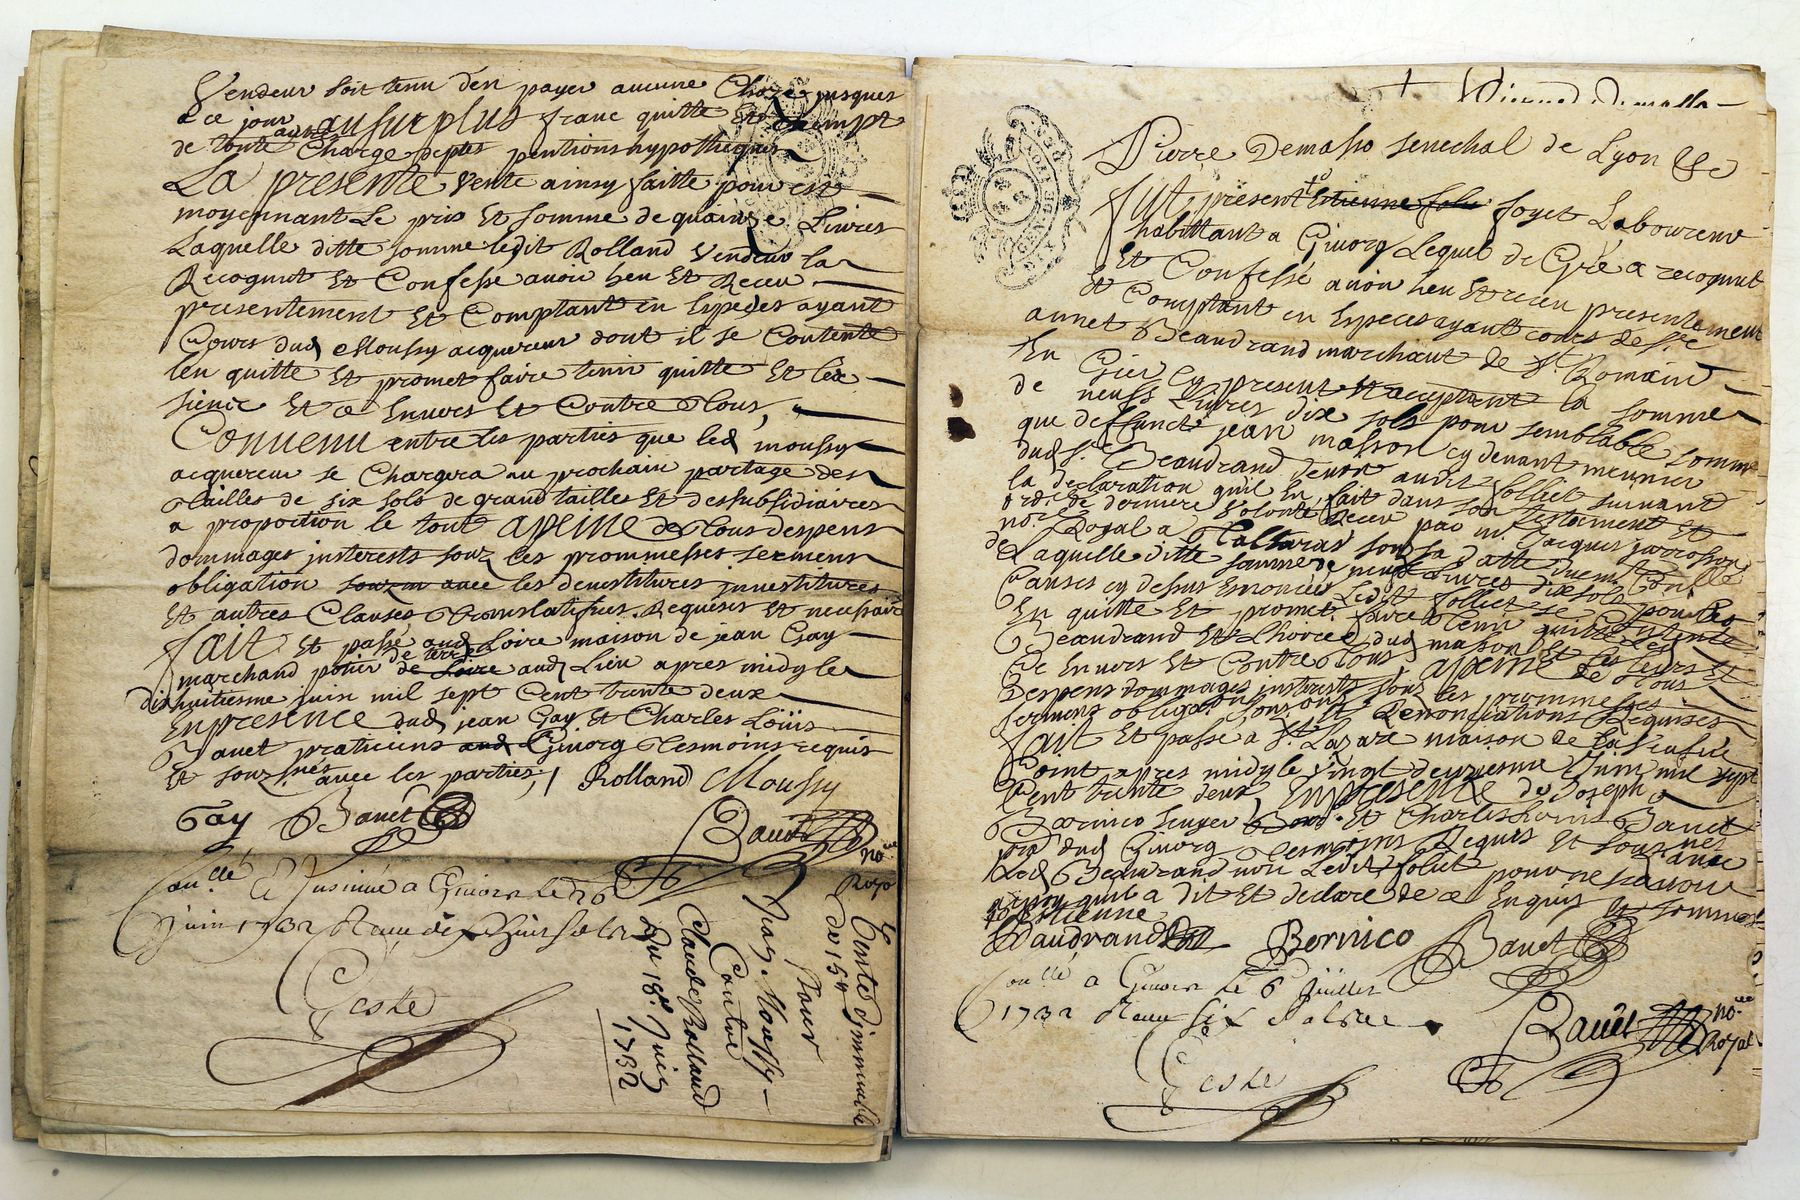 Vendeur soit tenu d'en payer aucune Choze jusques
a ce jour au surplus franc quitte Et Exempt
de toute Charge deptes pentions hypotheques
La presente Vente ainsy faitte pour est
moyennant Le prix Et somme de quainze Livres
Laquelle ditte somme ledit Rolland Vendeur la
Recognut Et Confesse avoir heu Et Receu
presentement Et Comptant En Especes ayant
Cours dud Moussy acquereur dont il se Contente
len quitte Et promet faire tenir quitte Et les
siens Et ce Envers Et Contre Tous,
Convenu entre les parties que led moussy
acquereur se Chargera au prochain partage des
Tailles de six sols de grand tailles Et des subsidiaires
a proportion le tout apeine de Tous despens
dommages insterests souz les prommesses sermens
obligation avec les devestitures investitures
Et autres Clauses Translatifves Requises Et necessaire
fait Et passé aud Loire maison de jean Gay
marchand potier de terre aud Lieu apres midy le
dixhuitiesme juin mil sept Cent trente deux
En presence dud jean Gay Et Charles Loüis
Banet praticiens Givorg Tesmoins requis
Et souzsnes avec les parties, Rolland Moussy
Gay Banet
Bauet no.re
Royal
Con.llé Et Insinué a Givors le 26
juin 1732 Receu dix huit sols
Geste
Vente d'immeuble
de 15#
Pour
Jean Moussy
Contre
Claude Rolland
Du 18e Juin
1732
Pierre Demasso senechal de Lyon &c
fut present foyet Laboureur
habittant a Givorg Lequel de Gré a recognut
Et Confessé avoir heu Et receu presentement
Et Comptant en Especes ayant cours de s.r
annet Beaudrand marchant de St Romain
En Gier cy present Et acceptant la somme
de neufs Livres dix sols pour semblable somme
que deffunct jean masson cy devant meunier
dud s.r Beaudrand devoir audit folliet suivant
la declaration quil En fait dans son testament Et
ord.ce de derniere Volonté Receu par m.e Jacques jarrosson
no.re Royal a
de Laquelle ditte somme de neufs Livres dix sols pour les
Causes cy desus Enoncées Ledit folliet se Contente
En quitte Et promet faire tenir quitte Led
Beaudrand Et hoirs dud masson Et les leurs Et
Ce Envers Et Contre Tous, apeine de Tous
Despens dommages insterests souz les prommesses
sermens obligation Renonciations Requises
fait Et passé a St Lazare maison de la
Point apres midy le vingt deuxiesme Juin mil sept
Cent trente deux En presence de Joseph
Bornico Et Charles Loüis Banet
dud Givorg Tesmoins Requis Et souzsnes
Led Beaudrand non Ledit foliet pour ne sçavoir
quil a dit Et declaré de ce Enquis Et sommé
Estienne
Baudrand Bornico Banet
Con.llé a Givors le 6 Juillet
1732 Receu six sols
Bauet no.re
Royal
Geste